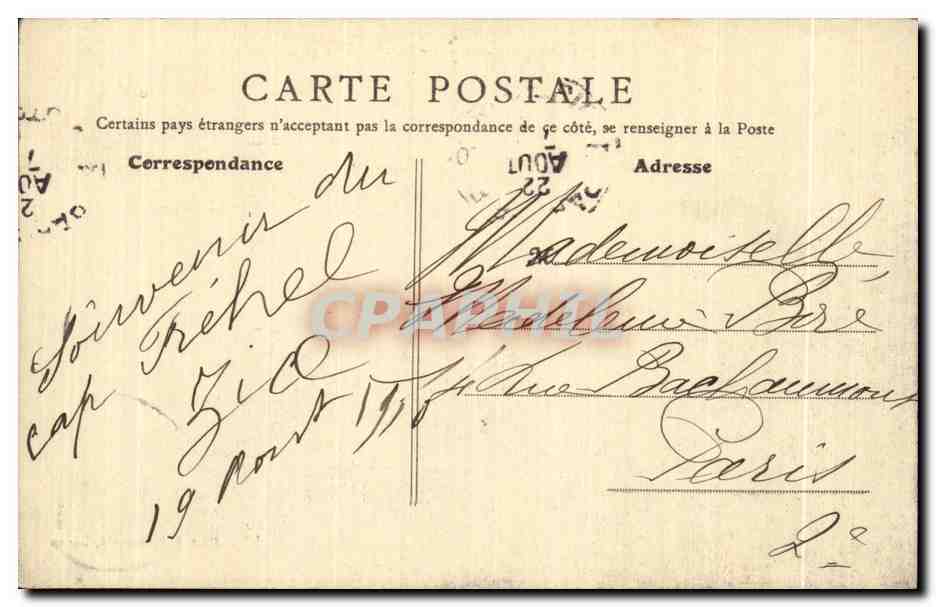 CARTE POSTALE
Certains pays étrangers n'acceptant pas la correspondance de ce côté, se renseigner à la Poste
Correspondance
Adresse
22
AOUT
Souvenir du
cap Fréhel
19 Aout
Mademoiselle
Madeleine Biré
Rue Bachaumont
Paris
2e
CPAPHIL